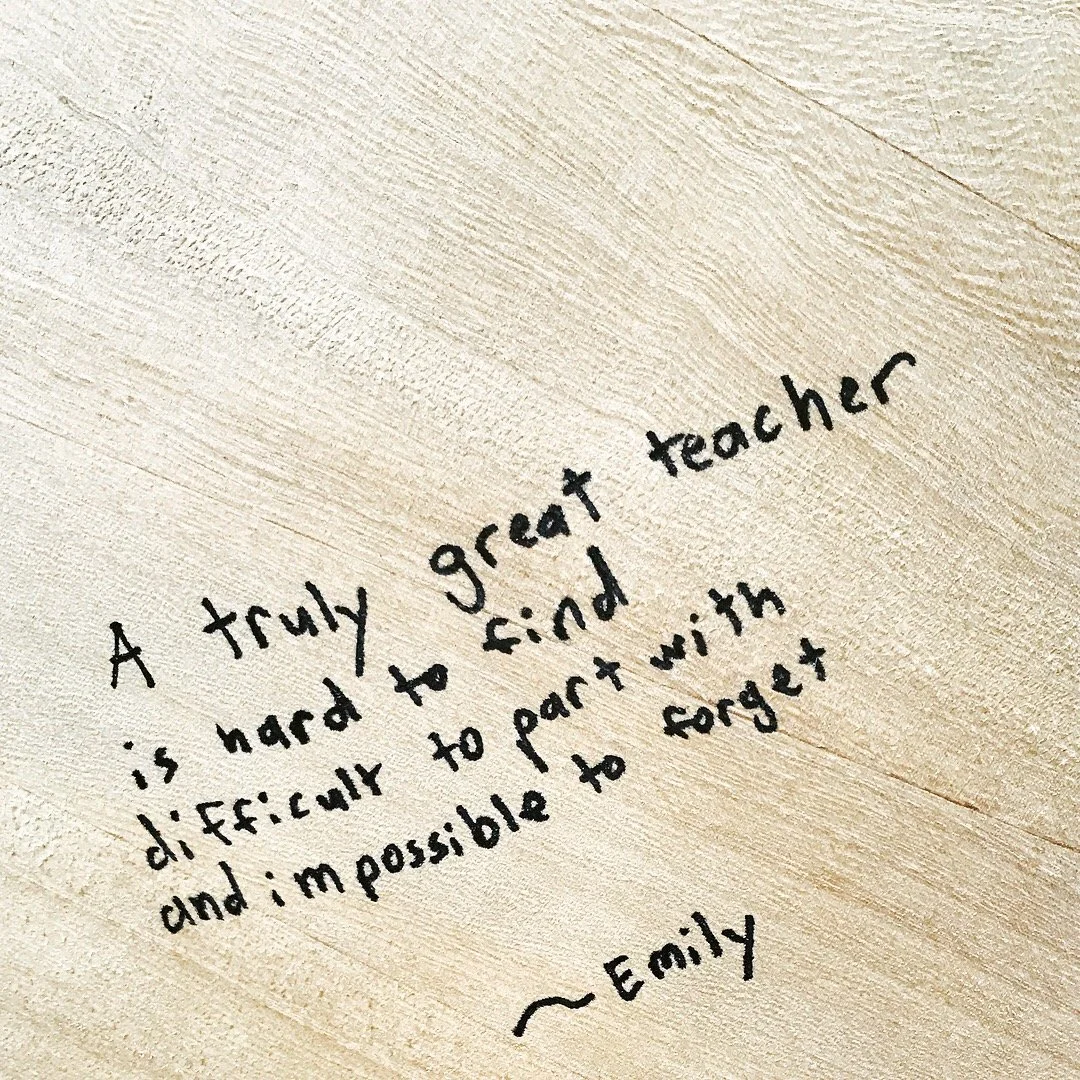 A truly great teacher
is hard to find
difficult to part with
and impossible to forget
~Emily